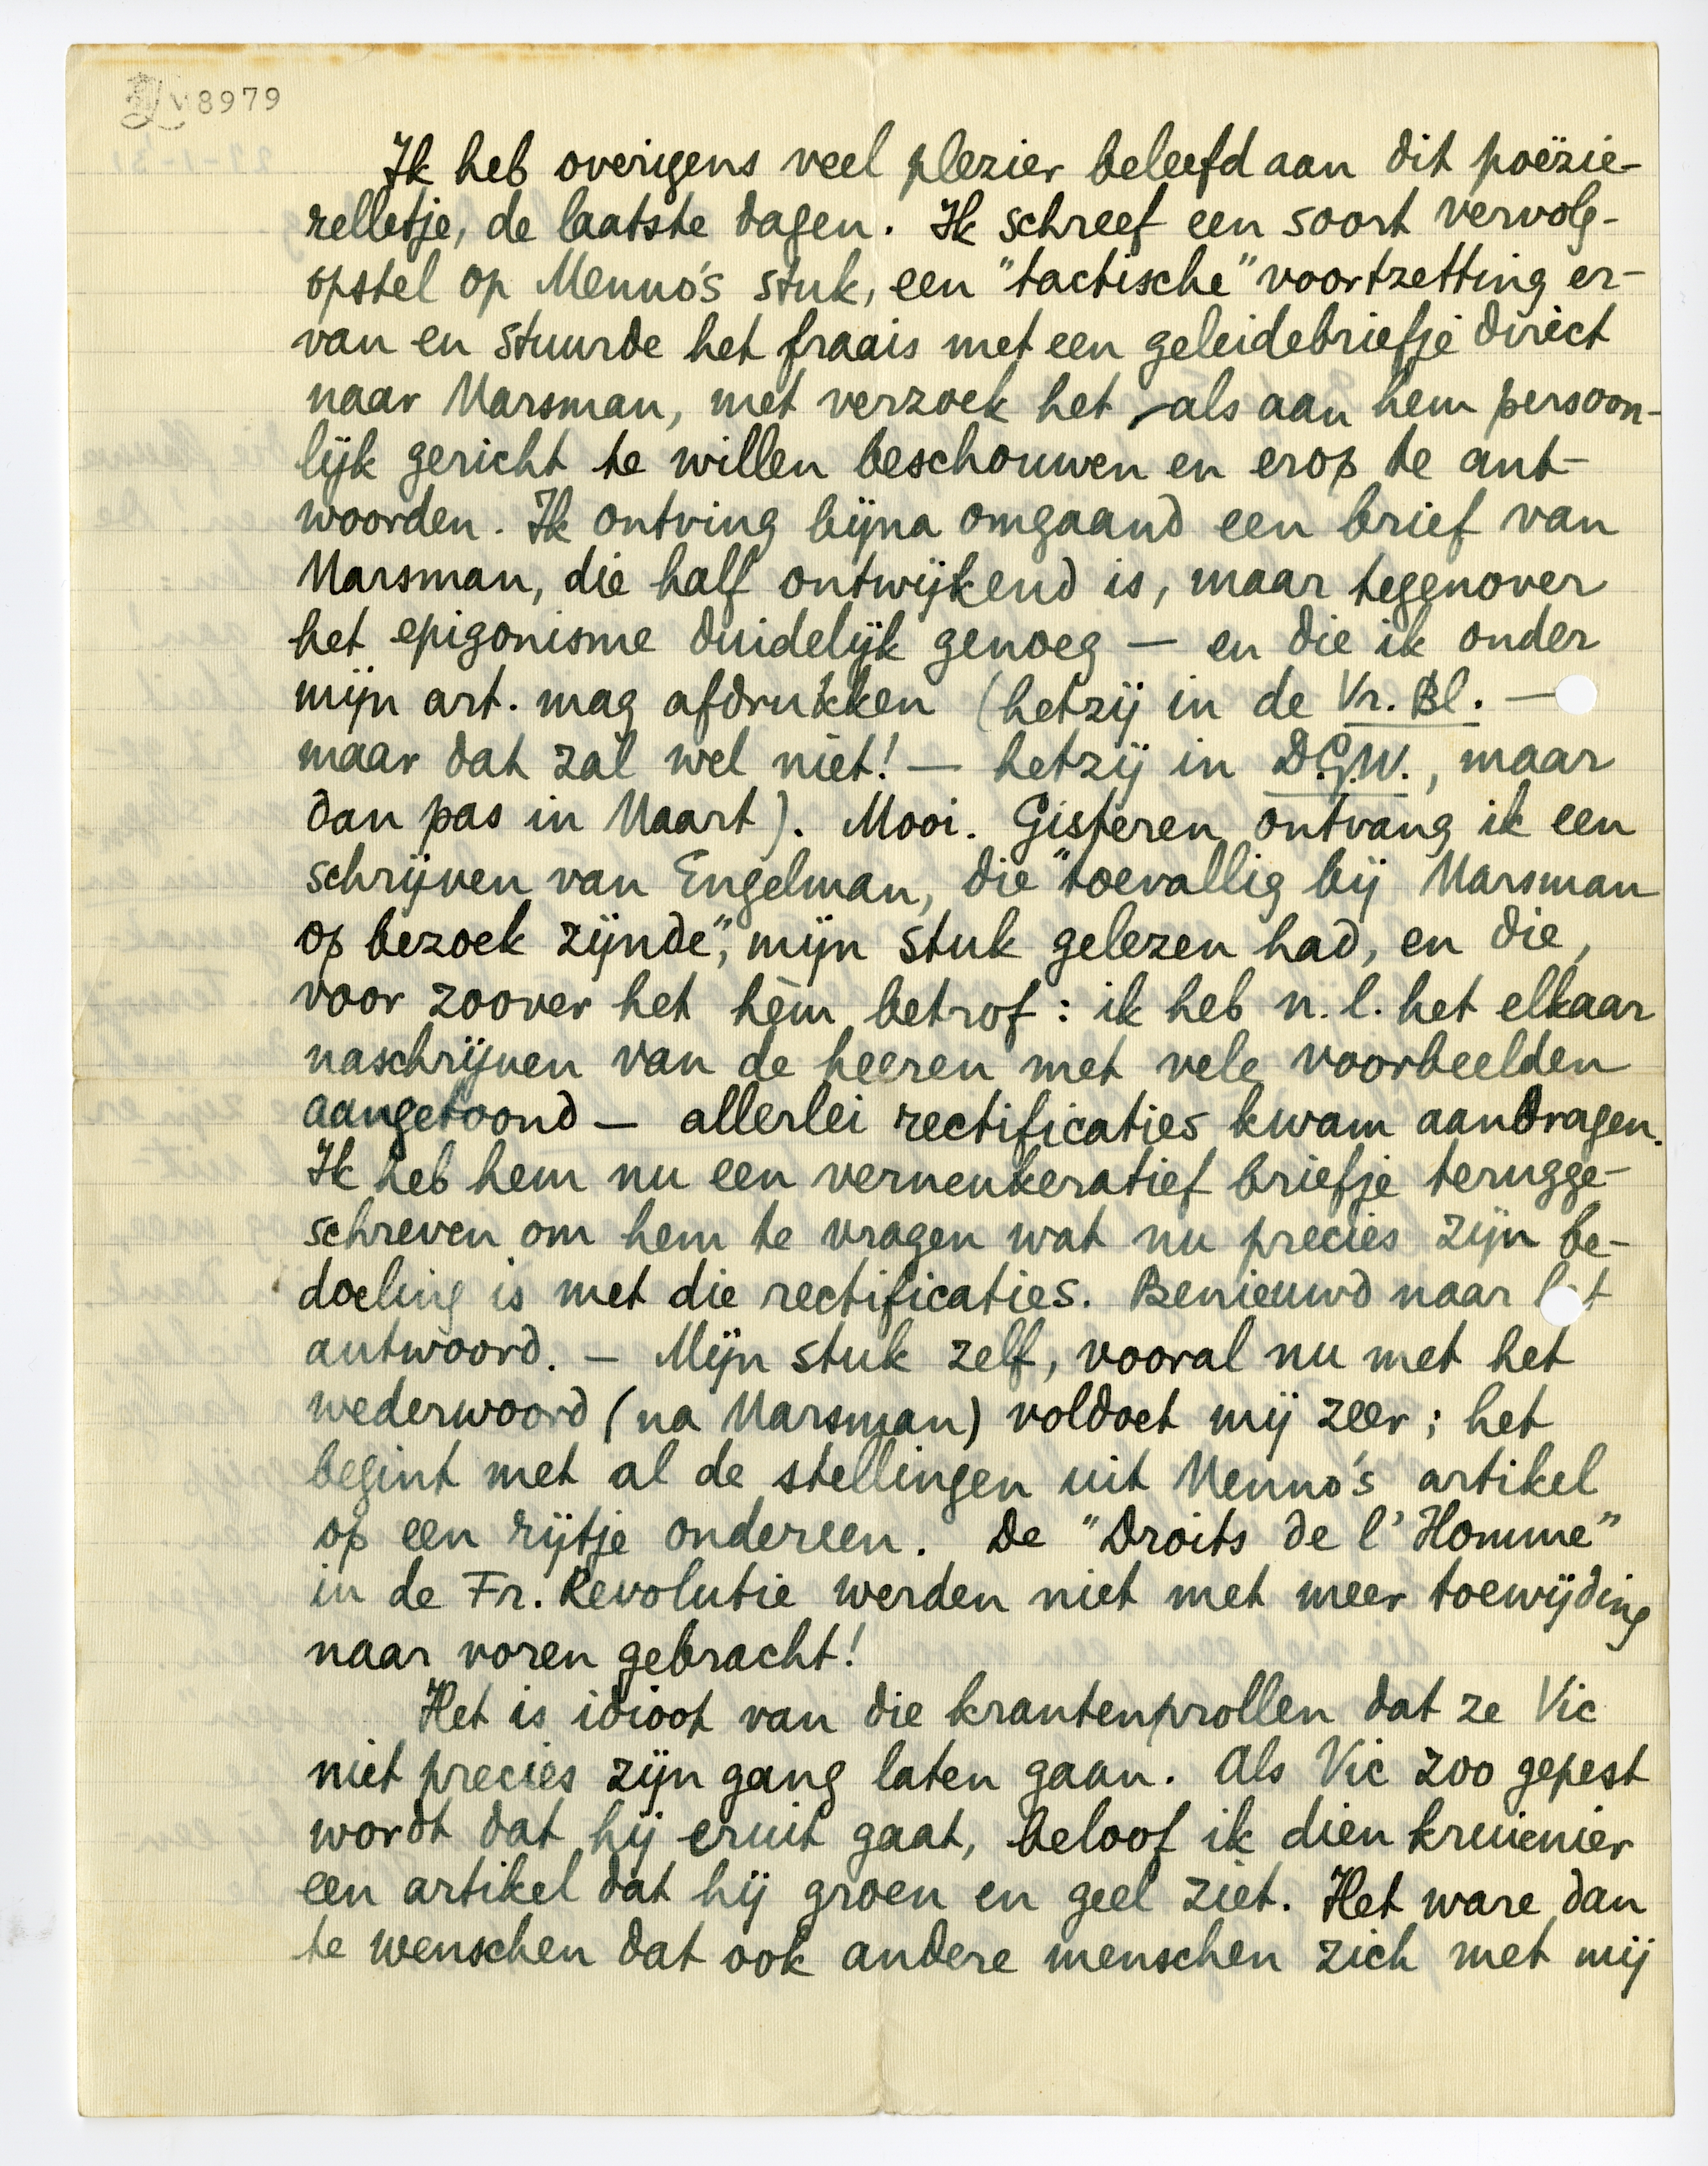 v8979
Ik heb overigens veel plezier beleefd aan dit poëzie-
relletje, de laatste dagen. Ik schreef een soort vervolg-
opstel op Menno's stuk, een "tactische" voortzetting er-
van en stuurde het fraais met een geleidebriefje direct
naar Marsman, met verzoek het als aan hem persoon-
lijk gericht te willen beschouwen en erop te ant-
woorden. Ik ontving bijna omgaand een brief van
Marsman, die half ontwijkend is, maar tegenover
het epigonisme duidelijk genoeg — en die ik onder
mijn art. mag afdrukken (hetzij in de Vr. Bl. —
maar dat zal wel niet! — hetzij in D.G.W., maar
dan pas in Maart). Mooi. Gisteren ontvang ik een
schrijven van Engelman, die "toevallig bij Marsman
op bezoek zijnde", mijn stuk gelezen had, en die,
voor zoover het hèm betrof: ik heb n.l. het elkaar
naschrijven van de heeren met vele voorbeelden
aangetoond — allerlei rectificaties kwam aandragen.
Ik heb hem nu een verneukeratief briefje terugge-
schreven om hem te vragen wat nu precies zijn be-
doeling is met die rectificaties. Benieuwd naar het
antwoord. — Mijn stuk zelf, vooral nu met het
wederwoord (na Marsman) voldoet mij zeer; het
begint met al de stellingen uit Menno's artikel
op een rijtje ondereen. De "Droits de l'Homme"
in de Fr. Revolutie werden niet met meer toewijding
naar voren gebracht!
Het is idioot van die krantenprollen dat ze Vic
niet precies zijn gang laten gaan. Als Vic zoo gepest
wordt dat hij eruit gaat, beloof ik dien kruienier
een artikel dat hij groen en geel ziet. Het ware dan
te wenschen dat ook andere menschen zich met mij